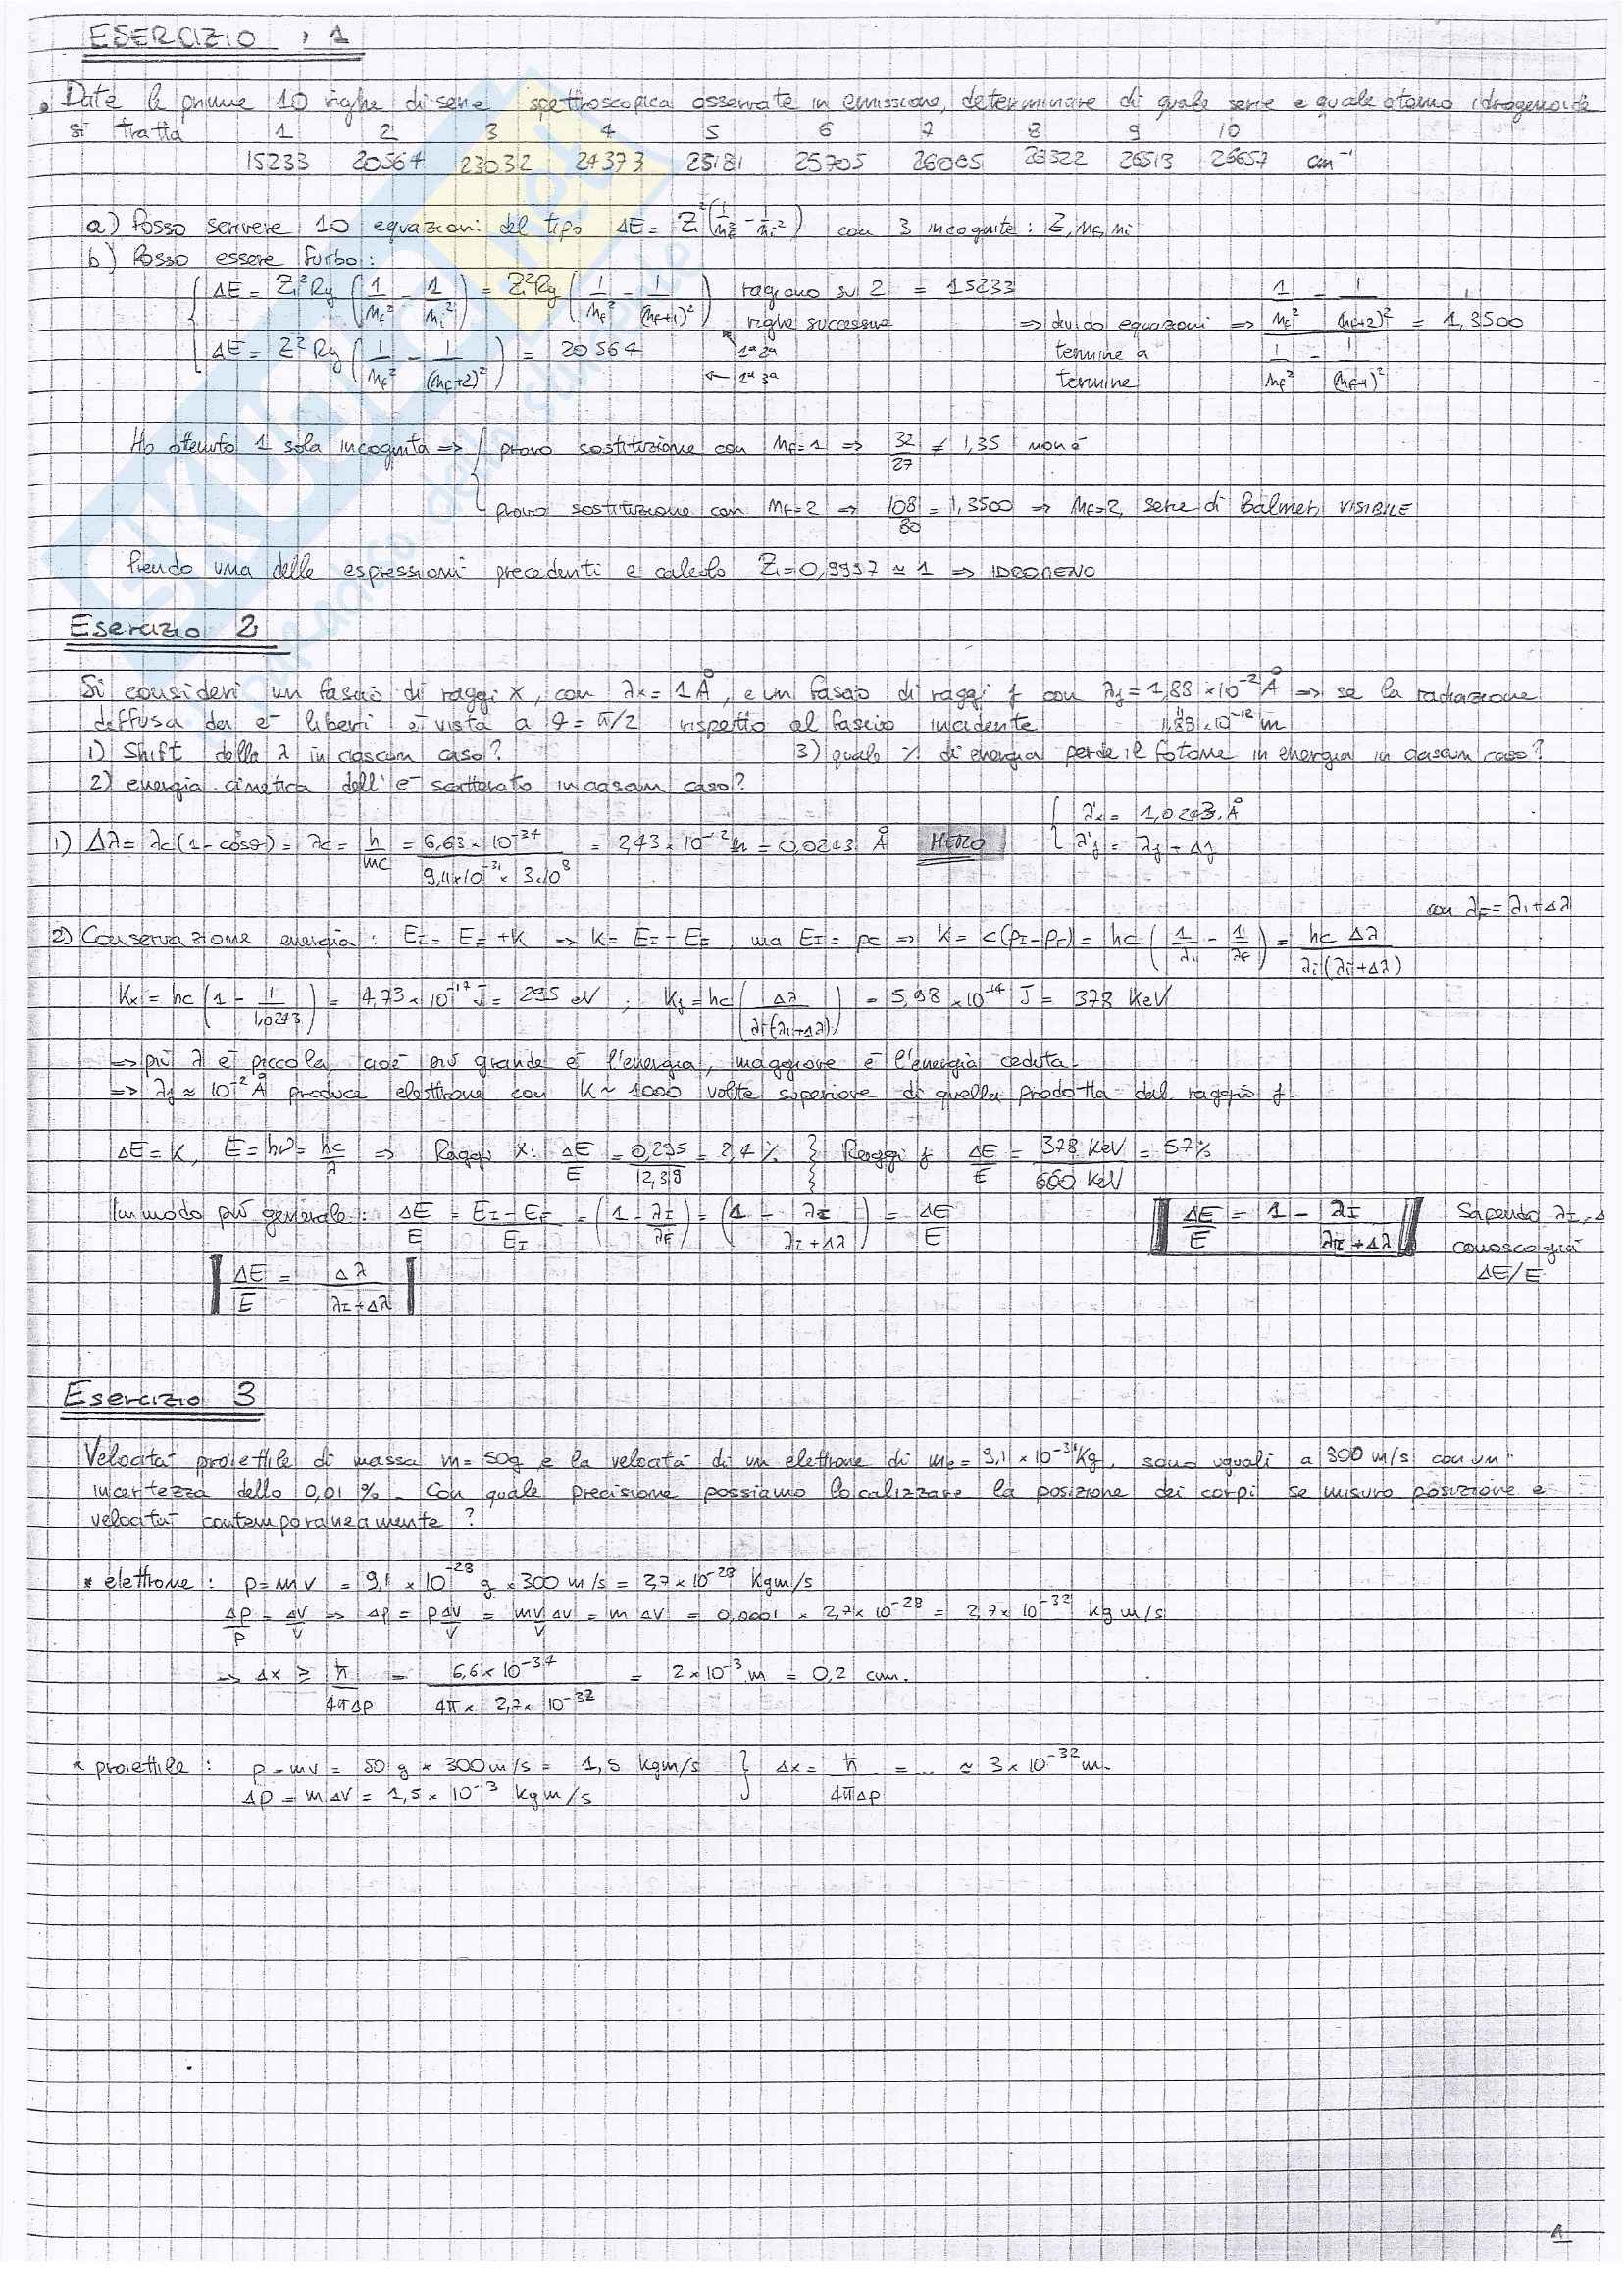 ESERCIZIO 1
• Date le prime 10 righe di serie spettroscopica osservate in emissione, determinare di quale serie e quale atomo idrogenoide
si tratta 1 2 3 4 5 6 7 8 9 10
15233 20564 23032 24373 25181 25705 26065 26322 26513 26657 cm⁻¹
a) Posso scrivere 10 equazioni del tipo ΔE = Z²(1/nf² - 1/ni²) con 3 incognite: Z, nf, ni
b) Posso essere furbo:
ΔE = Z²Ry (1/nf² - 1/ni²) = Z²Ry (1/nf² - 1/(nf+1)²) ragiono su 2 = 15233
righe successive ⇒ divido equazioni ⇒ (1/nf² - 1/(nf+2)²) / (1/nf² - 1/(nf+1)²) = 1,3500
ΔE = Z²Ry (1/nf² - 1/(nf+2)²) = 20564 1ª 2ª termine a
← 1ª 3ª termine
Ho ottenuto 1 sola incognita ⇒ { provo sostituzione con nf=1 ⇒ 32/27 ≠ 1,35 non è
provo sostituzione con nf=2 ⇒ 108/80 = 1,3500 ⇒ nf=2, serie di Balmer, VISIBILE
Prendo una delle espressioni precedenti e calcolo Z=0,9997 ≈ 1 ⇒ IDROGENO
Esercizio 2
Si consideri un fascio di raggi X, con λx = 1 Å, e un fascio di raggi γ con λγ = 1,88 × 10⁻² Å ⇒ se la radiazione
diffusa da e⁻ liberi è vista a θ = π/2 rispetto al fascio incidente 1,88·10⁻¹² m
1) Shift della λ in ciascun caso? 3) quale % di energia perde il fotone in energia in ciascun caso?
2) energia cinetica dell'e⁻ scatterato in ciascun caso?
1) Δλ = λc(1-cosθ) = λc = h/mc = 6,63×10⁻³⁴ / 9,11×10⁻³¹ × 3·10⁸ = 2,43 × 10⁻¹² m = 0,0243 Å { λ'x = 1,0243 Å
λ'γ = λγ + Δγ
con λF = λI + Δλ
2) Conservazione energia: EI = EF + K ⇒ K = EI - EF ma EI = pc ⇒ K = c(pI - pF) = hc (1/λi - 1/λF) = hc Δλ / λi(λi+Δλ)
Kx = hc (1 - 1/1,0243) = 4,73 × 10⁻¹⁷ J = 295 eV ; Kγ = hc (Δλ / λi(λi+Δλ)) = 5,98 × 10⁻¹⁴ J = 378 KeV
⇒ più λ è piccola, cioè più grande è l'energia, maggiore è l'energia ceduta.
⇒ λγ ≈ 10⁻² Å produce elettrone con K ~ 1000 volte superiore di quella prodotta dal raggio γ.
ΔE = K, E = hν = hc/λ ⇒ Raggi X: ΔE/E = 0,295/12,38 = 2,4% } Raggi γ ΔE/E = 378 KeV / 660 KeV = 57%
In modo più generale: ΔE/E = (EI - EF)/EI = (1 - λI/λF) = (1 - λI/(λI+Δλ)) = ΔE/E ΔE/E = 1 - λI/(λI+Δλ) Sapendo λI, Δ
conosco già
ΔE/E = Δλ/(λI+Δλ) ΔE/E
Esercizio 3
Velocità proiettile di massa m = 50g e la velocità di un elettrone di me = 9,1 × 10⁻³¹ Kg, sono uguali a 300 m/s con un'
incertezza dello 0,01 %. Con quale precisione possiamo localizzare la posizione dei corpi se misuro posizione e
velocità contemporaneamente?
* elettrone: p = mv = 9,1 × 10⁻²⁸ g × 300 m/s = 2,7 × 10⁻²⁸ Kgm/s
Δp/p = Δv/v ⇒ Δp = pΔv/v = mv/v Δv = m Δv = 0,0001 × 2,7 × 10⁻²⁸ = 2,7 × 10⁻³² kg m/s
⇒ Δx ≥ ħ/4πΔp = 6,6 × 10⁻³⁴ / 4π × 2,7 × 10⁻³² = 2 × 10⁻³ m = 0,2 cm.
* proiettile: p = mv = 50 g × 300 m/s = 1,5 Kgm/s } Δx = ħ/4πΔp = ... ≈ 3 × 10⁻³² m.
Δp = mΔv = 1,5 × 10⁻³ Kgm/s
1